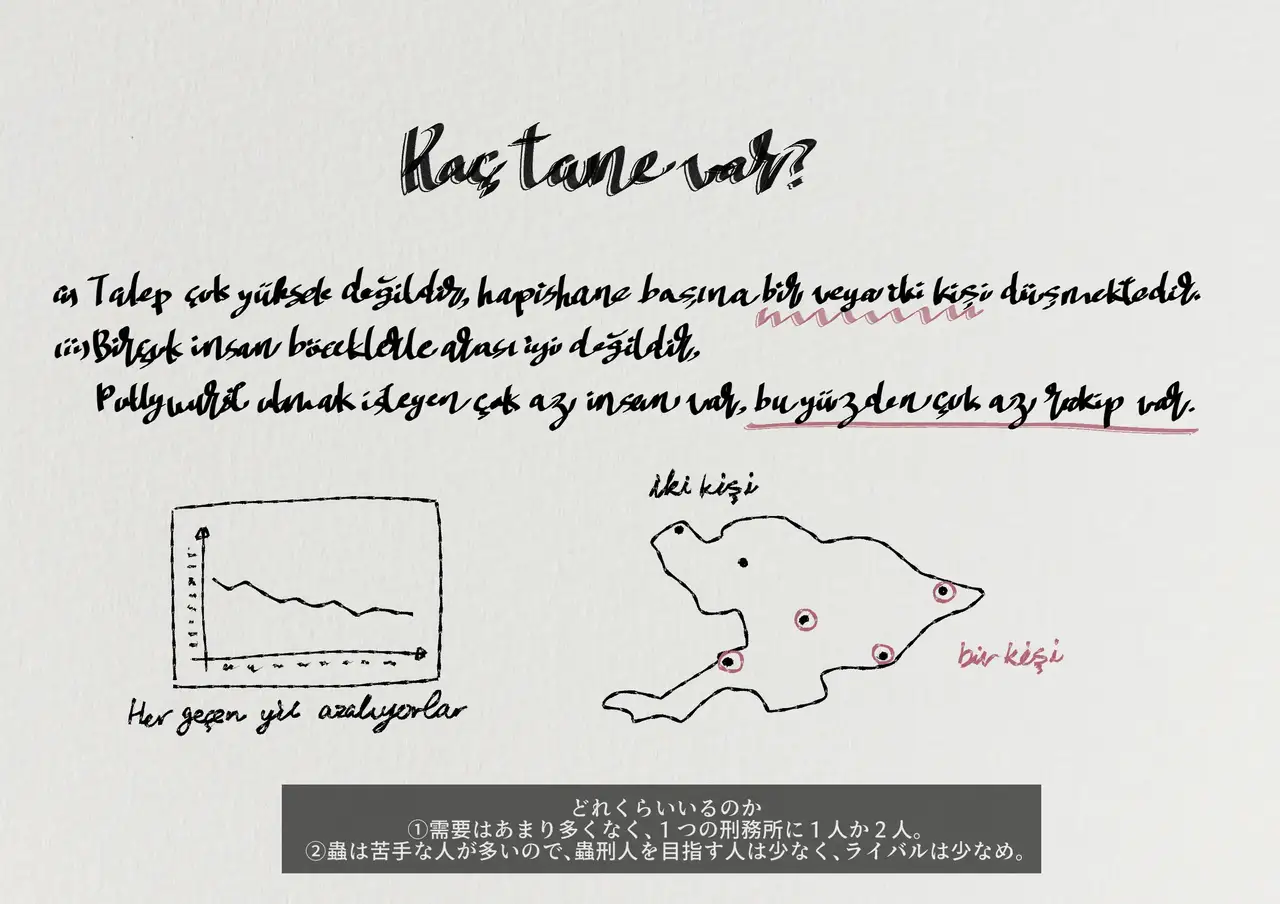 Kaç tane var?
(i) Talep çok yüksek değildir, hapishane başına bir veya iki kişi düşmektedir.
(ii) Birçok insan böceklerle arası iyi değildir,
olmak isteyen çok azı insan var, bu yüzden çok azı rakip var.
iki kişi
bir kişi
Her geçen yıl azalıyorlar
どれくらいいるのか
①需要はあまり多くなく、1つの刑務所に1人か2人。
②蟲は苦手な人が多いので、蟲刑人を目指す人は少なく、ライバルは少なめ。